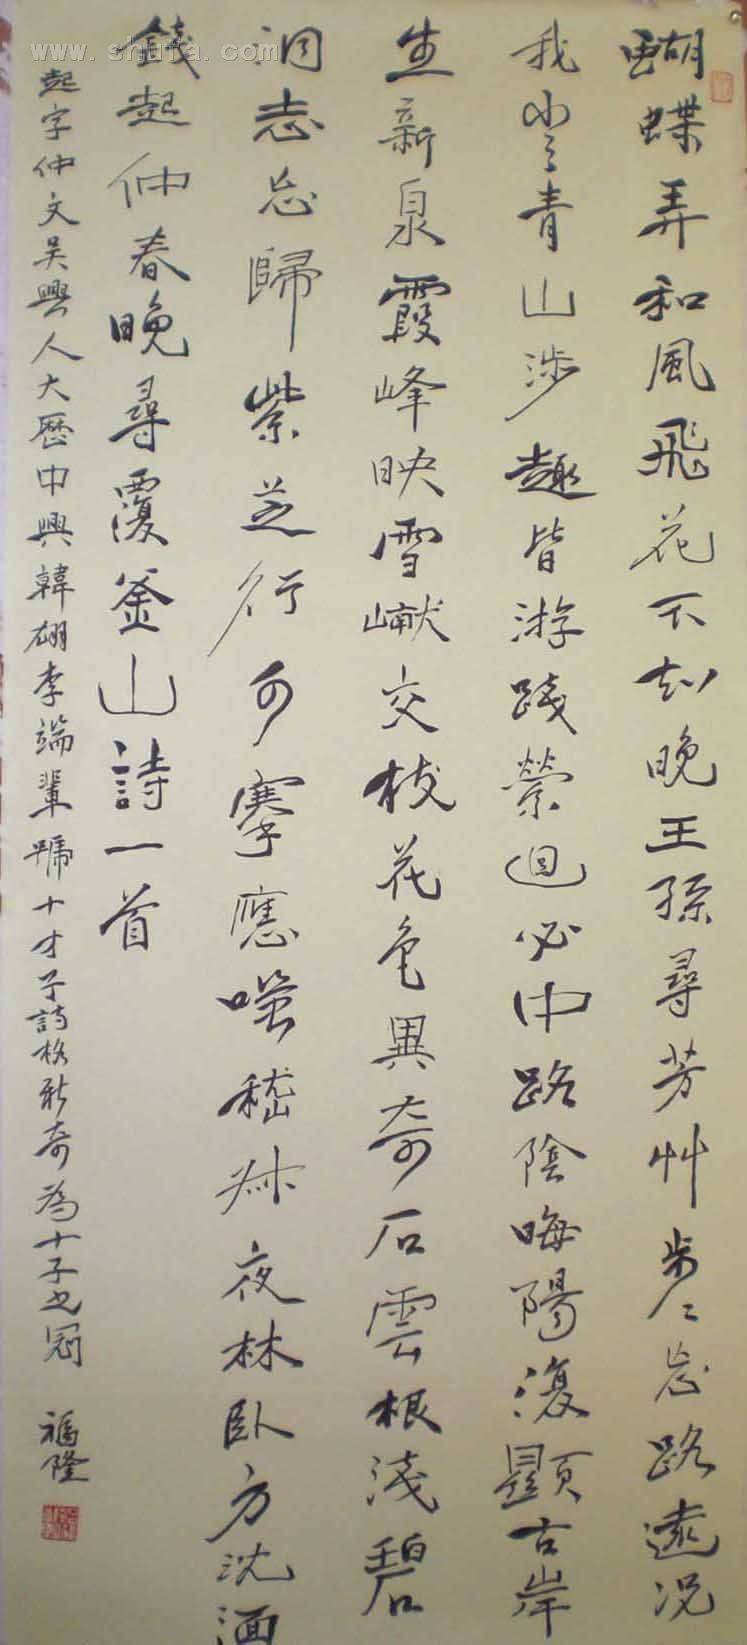 www.shufa.com
蝴蝶弄和風飛花不知晚王孫尋芳艸步々忘路遠況
我愛青山涉趣皆游踐縈迴必中路陰晦陽復顯古岸
生新泉霞峰映雪巘交枝花色異奇石雲根淺碧
洞志忘歸紫芝行可搴應嗤嵇叔夜林臥方沈湎
錢起仲春晚尋覆釜山詩一首
起字仲文吳興人大歷中與韓翃李端輩號十才子詩格新奇為十子之冠
福隆